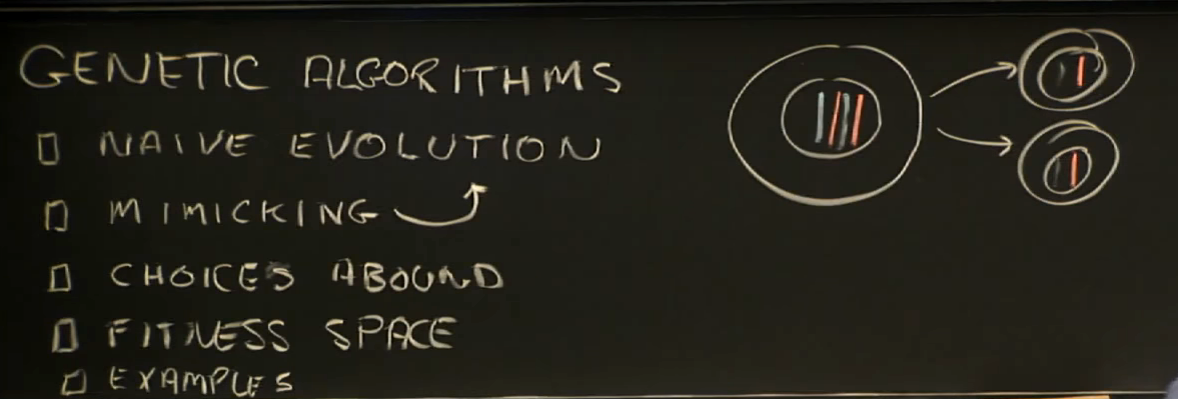 GENETIC ALGORITHMS
NAIVE EVOLUTION
MIMICKING
CHOICES ABOUND
FITNESS SPACE
EXAMPLES